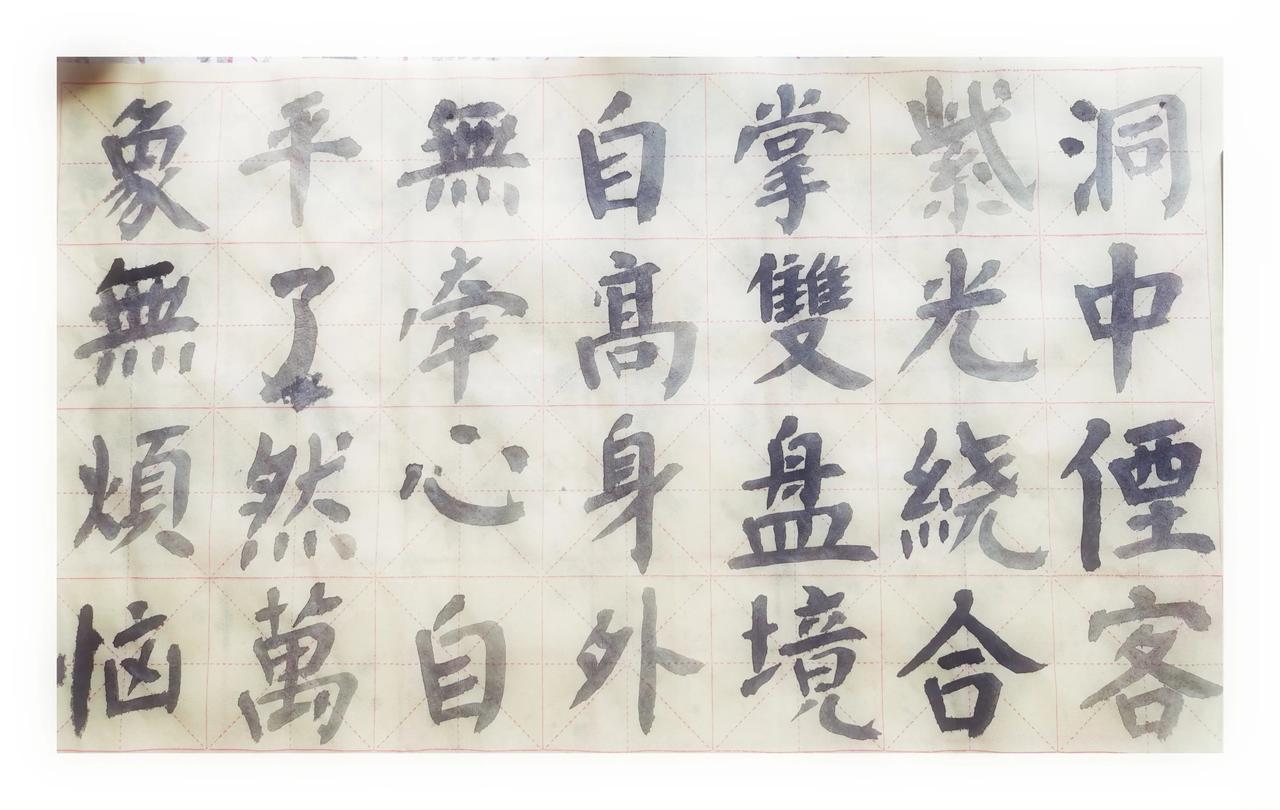 洞中僊客
紫光繞合
掌雙盘境
自髙身外
無牽心自
平了然萬
象無煩恼